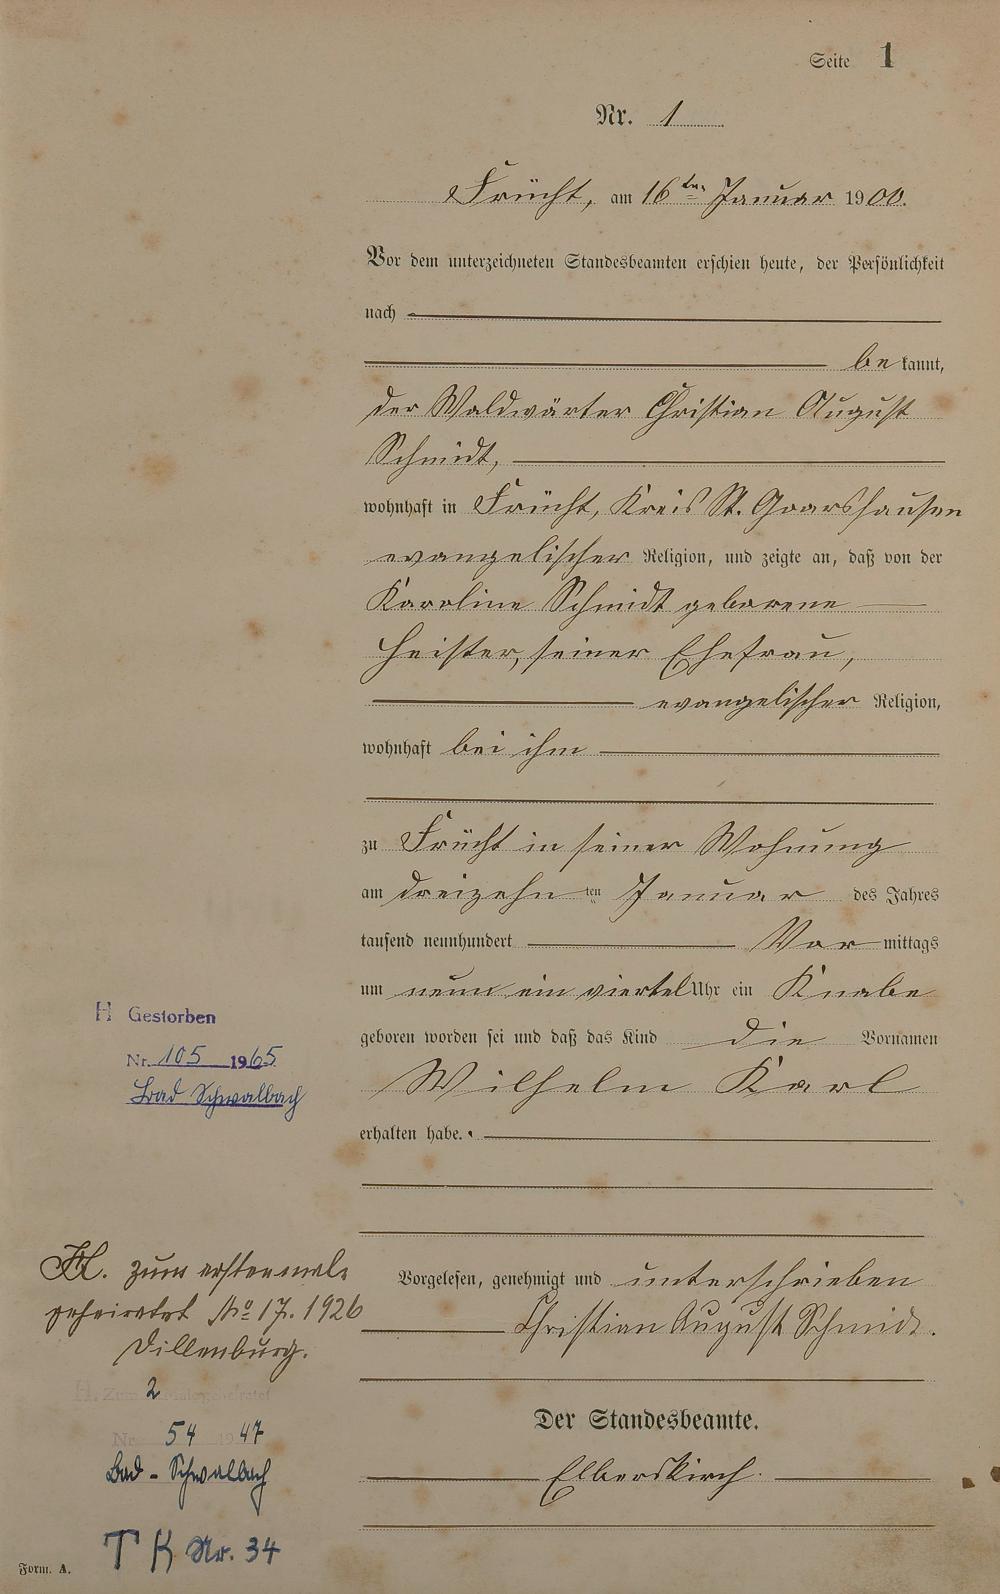 Seite 1
Nr. 1
Frücht, am 16ten Januar 1900.
Vor dem unterzeichneten Standesbeamten erschien heute, der Persönlichkeit
nach
bekannt,
der Waldwärter Christian August
Schmidt,
wohnhaft in Frücht, Kreis St. Goarshausen
evangelischer Religion, und zeigte an, daß von der
Karoline Schmidt geborene
Heister, seiner Ehefrau,
evangelischer Religion,
wohnhaft bei ihm
zu Frücht in seiner Wohnung
am dreizehnten Januar des Jahres
tausend neunhundert Vormittags
um neun ein viertel Uhr ein Knabe
geboren worden sei und daß das Kind die Vornamen
Wilhelm Karl
erhalten habe.
H Gestorben
Nr. 105 1965
Bad Schwalbach
Vorgelesen, genehmigt und unterschrieben
Christian August Schmidt.
H. zum erstenmale
geheiratet No 17. 1926
Dillenburg.
H. Zum 2 male geheiratet
Nr. 54 1947
Bad-Schwalbach
T K Nr. 34
Der Standesbeamte.
Elberskirch.
Form. A.